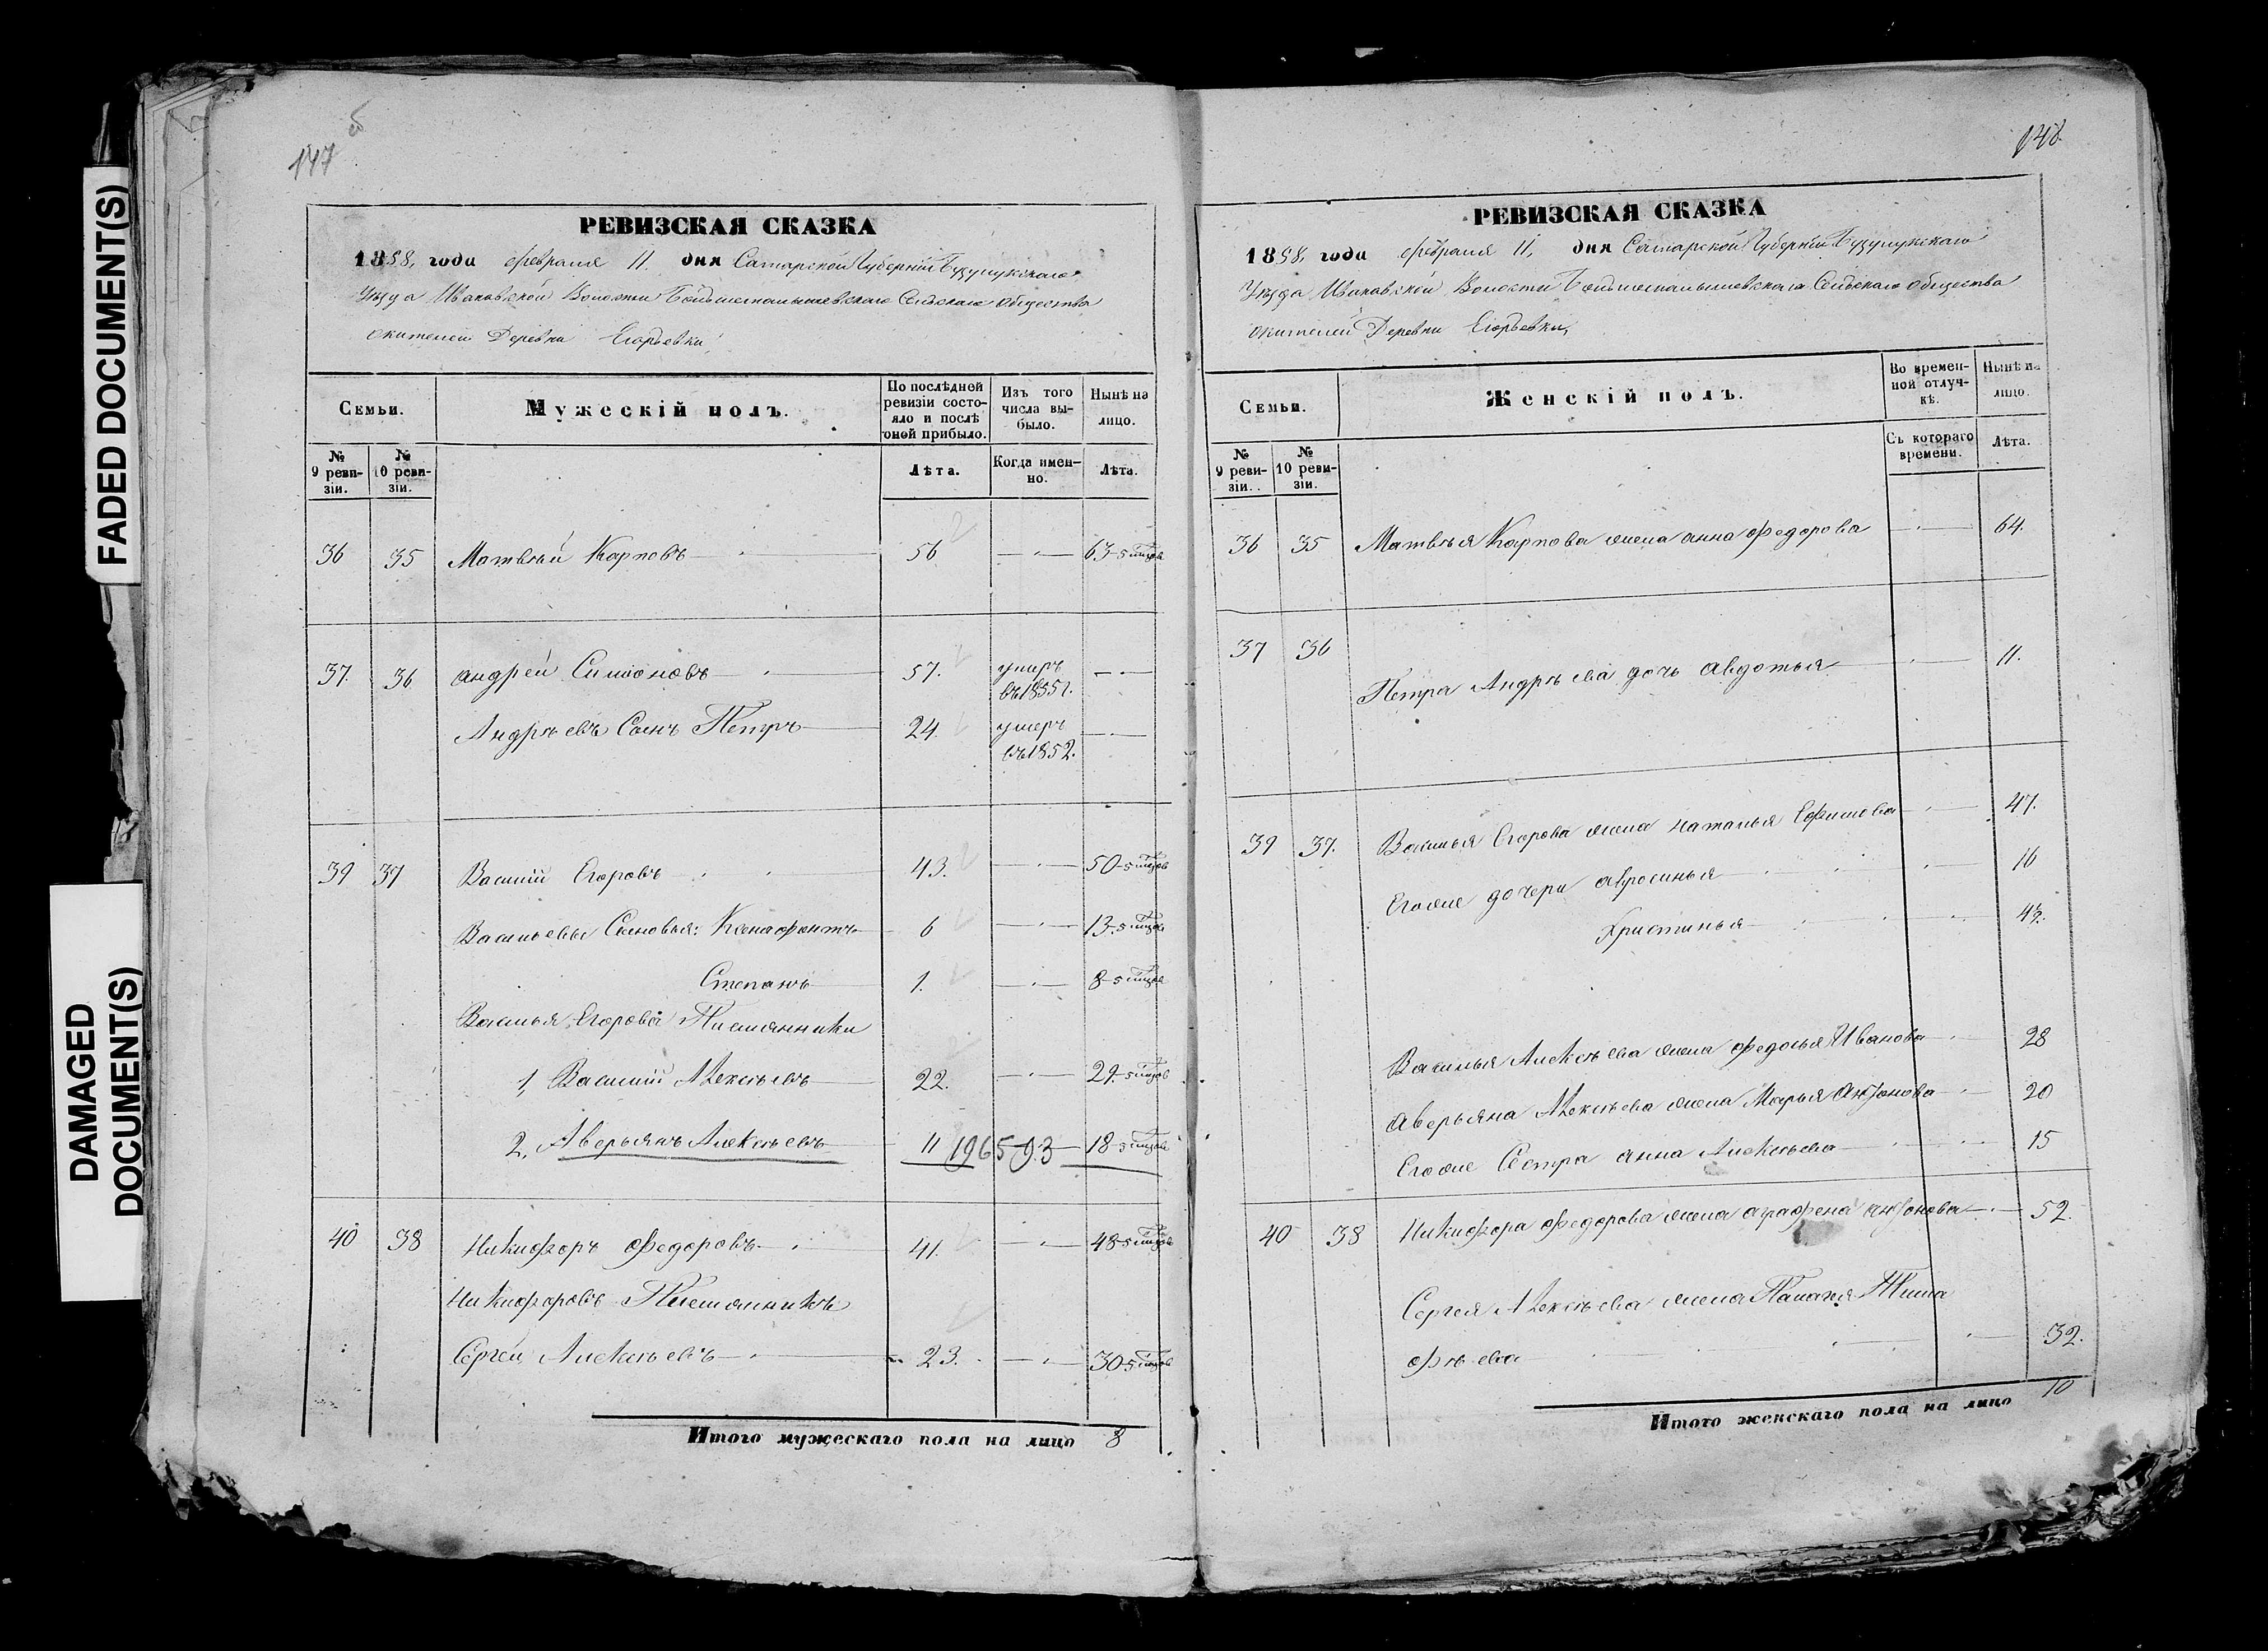 FADED DOCUMENT(S)
DAMAGED
DOCUMENT(S)
147
РЕВИЗСКАЯ СКАЗКА
1858, года февраля 11. дня Самарской Губернии Бузулукскаго
Уѣзда Ивановской Волости Сельскаго общества
жителей Деревни Егорьевки,
Семьи.
Мужескій полъ.
По послѣдней ревизіи состояло и послѣ оной прибыло.
Изъ того числа выбыло.
Нынѣ на лицо.
№ 9 ревизіи.
№ 10 ревизіи.
Лѣта.
Когда именно.
Лѣта.
36 35 Матвѣй Карповъ 56 63
37. 36 андрей Симоновъ 57. умеръ въ 1855 г.
Андрѣевъ Сынъ Петръ 24. умеръ въ 1852.
39 37 Василій Егоровъ 43. 50
Васильевы Сыновья: Ксенофонтъ 6 13
Степанъ 1. 8
Василья Егорова Племянники
1, Василій Алексѣевъ 22. 29
2, Аверьянъ Алексѣевъ 11 18
40 38 Никифоръ Федоровъ 41. 48
Никифоровъ Племянникъ
Сергѣй Алексѣевъ 23. 30
Итого мужескаго пола на лицо 8
148.
РЕВИЗСКАЯ СКАЗКА
1858, года февраля 11, дня Самарской Губерніи Бузулукскаго
Уѣзда Ивановской Волости Сельскаго общества
жителей Деревни Егорьевки,
Семьи.
Женскій полъ.
Во временной отлучкѣ.
Нынѣ на лицо.
№ 9 ревизіи.
№ 10 ревизіи.
Съ котораго времени.
Лѣта.
36 35 Матвѣя Карпова жена анна Федорова 64.
37 36
Петра Андрѣева дочь авдотья 11.
39 37. Василья Егорова жена наталья Ефимова 47.
Егоже дочери авросинья 16
Христинья
Василья Алексѣева жена федосья Иванова 28
аверьяна Алексѣева жена Марья анѳонова 20
Егоже Сестра анна Алексѣева 15
40 38 Никифора Федорова жена аграфена анѳонова 52.
Сергея Алексѣева жена Палагея Тимо
фѣева 32.
Итого женскаго пола на лицо 10